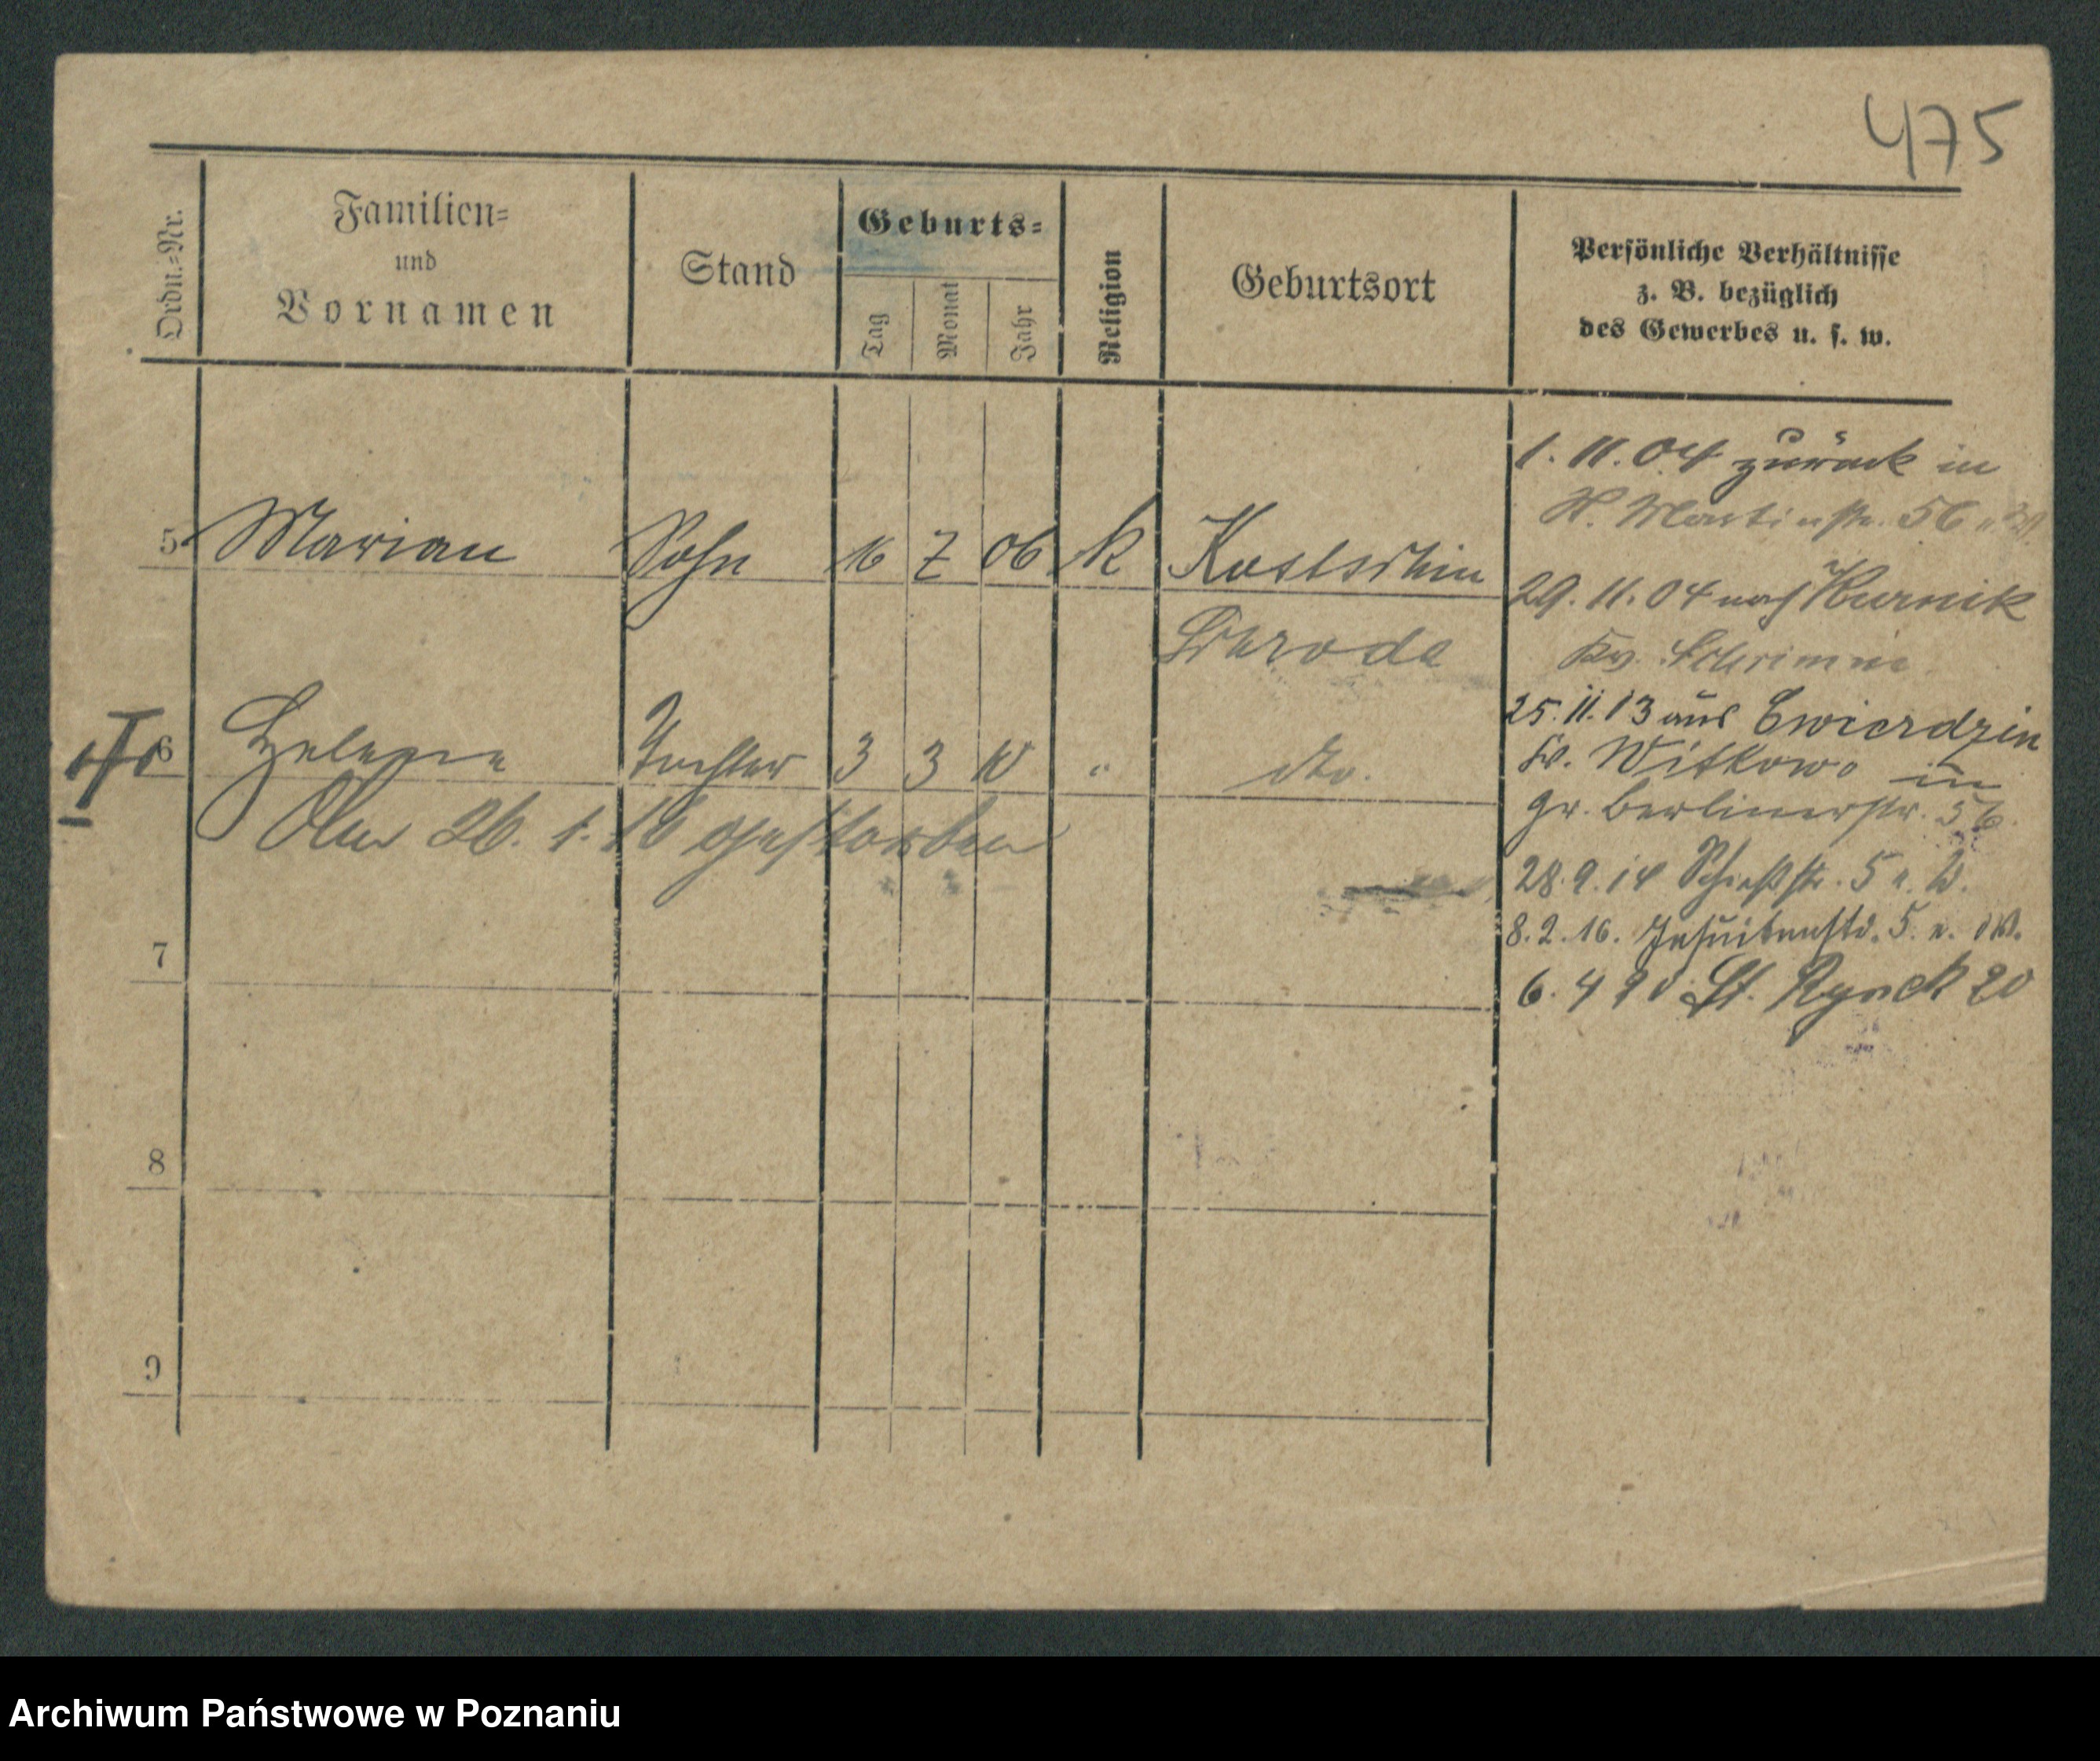 475
Ordn.=Nr.
Familien=
und
Vornamen
Stand
Geburts=
Tag
Monat
Jahr
Religion
Geburtsort
Persönliche Verhältnisse
z. B. bezüglich
des Gewerbes u. s. w.
5 Marian Sohn 16 7 06 k Kostschin
Schroda
6 Helene Tochter 3 3 10 " dto.
26. 1. 16 gestorben
7
8
9
1. 11. 04 zurück in
St. Martinstr. 56
29. 11. 04 nach Kurnik
Kr. Schrimm
25. 11. 13 aus Cwierdzin
Kr. Witkowo in
gr. Berlinerstr. 56.
28. 9. 14 Schießstr. 5 u. W.
8. 2. 16. Jesuitenstr. 5. u. W.
6. 4 20 St. Rynek 20
Archiwum Państwowe w Poznaniu